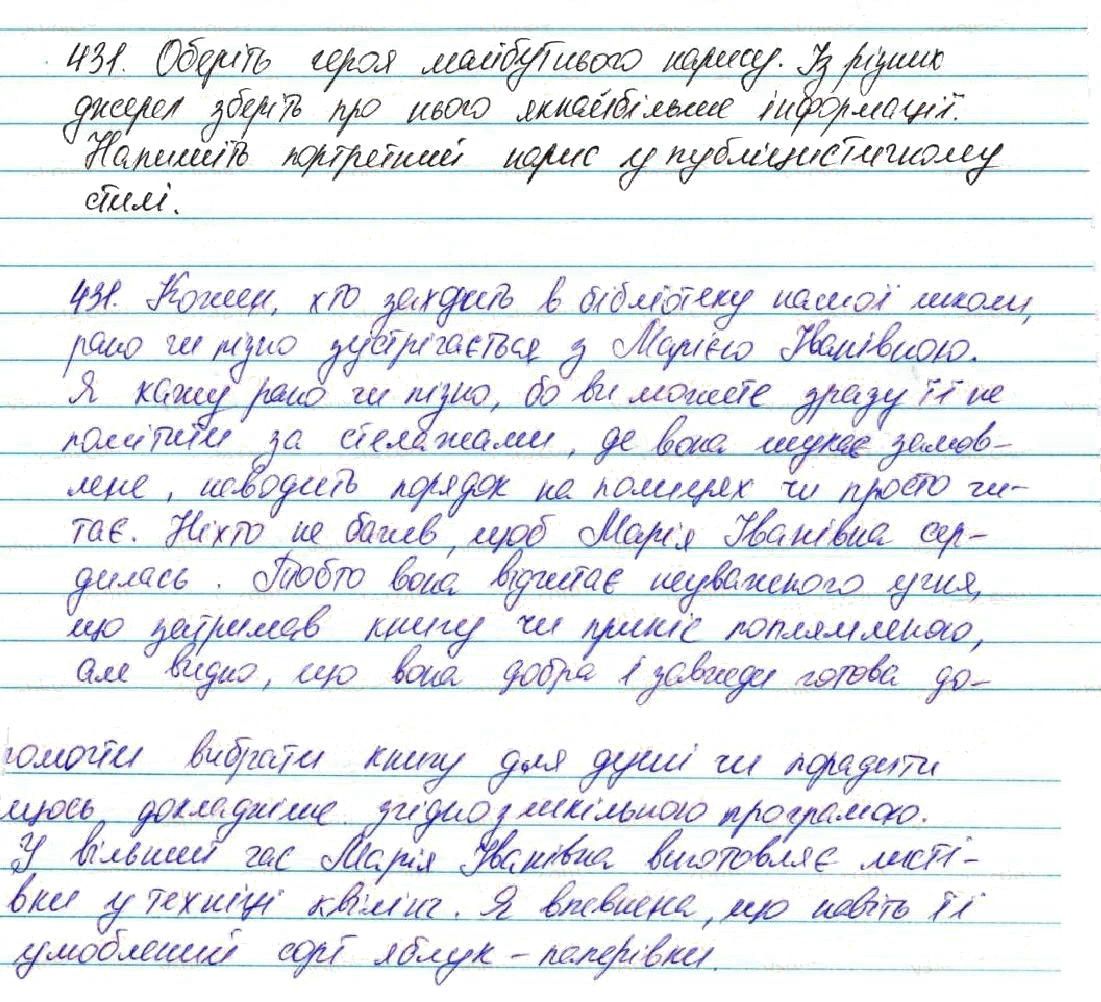 431. Оберіть героя майбутнього нарису. Із різних
джерел зберіть про нього якнайбільше інформації.
Напишіть портретний нарис у публіцистичному
стилі.
431. Кожен, хто заходить в бібліотеку нашої школи,
рано чи пізно зустрічається з Марією Іванівною.
Я кажу рано чи пізно, бо ви можете зразу її не
помітити за стелажами, де вона шукає замов-
лене, наводить порядок на полицях чи просто чи-
тає. Ніхто не бачив, щоб Марія Іванівна сер-
дилась. Тобто вона відчитає неуважного учня,
що затримав книгу чи приніс поплямленою,
але видно, що вона добра і завжди готова до-
помогти вибрати книгу для душі чи порадити
щось докладніше згідно з шкільною програмою.
У вільний час Марія Іванівна виготовляє листі-
вки у техніці квілінг. Я впевнена, що навіть її
улюблений сорт яблук - паперівки.